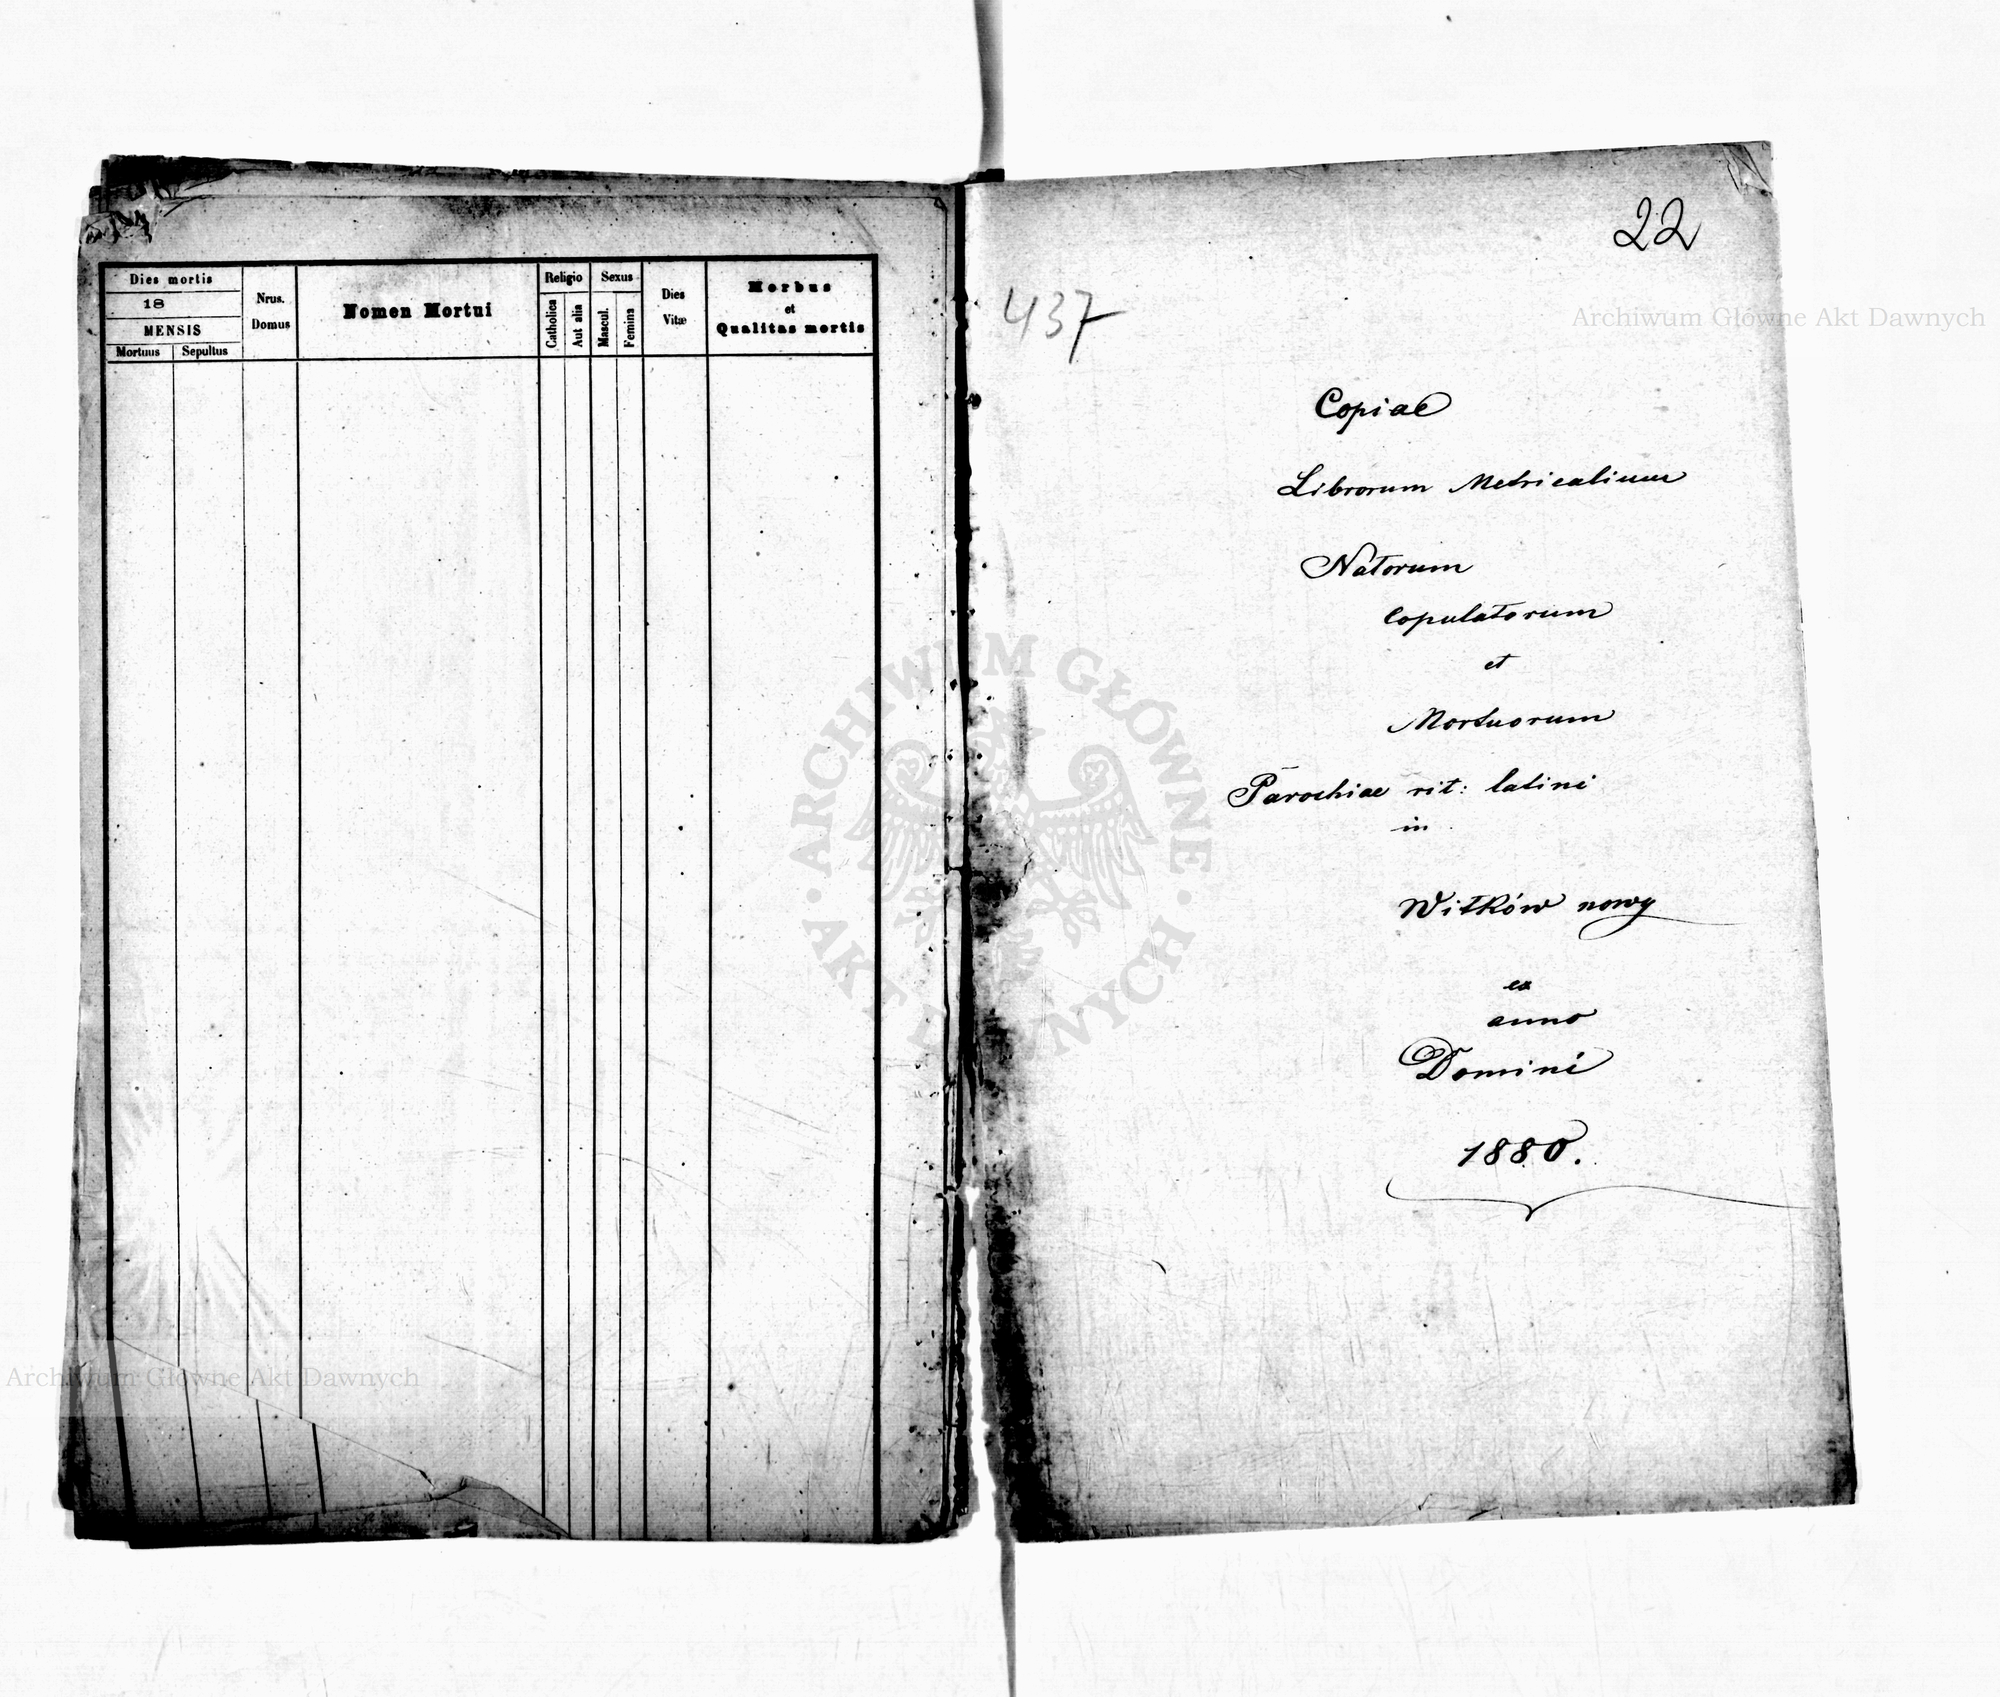 Dies mortis
18
MENSIS
Mortuus Sepultus
Nrus.
Domus
Nomen Mortui
Religio
Catholica
Aut alia
Sexus
Mascul.
Femina
Dies
Vitæ
Morbus
et
Qualitas mortis
22
437
Copiae
Librorum Metricalium
Natorum
Copulatorum
et
Mortuorum
Parochiae rit: latini
in
Witków nowy
ex
anno
Domini
1880.
Archiwum Główne Akt Dawnych
Archiwum Główne Akt Dawnych
ARCHIWUM GŁÓWNE
AKT DAWNYCH